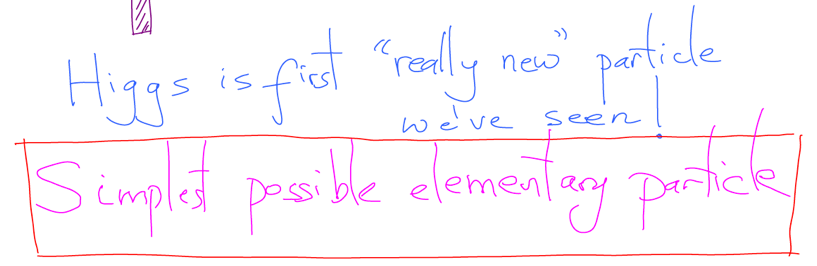 Higgs is first "really new" particle
we've seen!
Simplest possible elementary particle